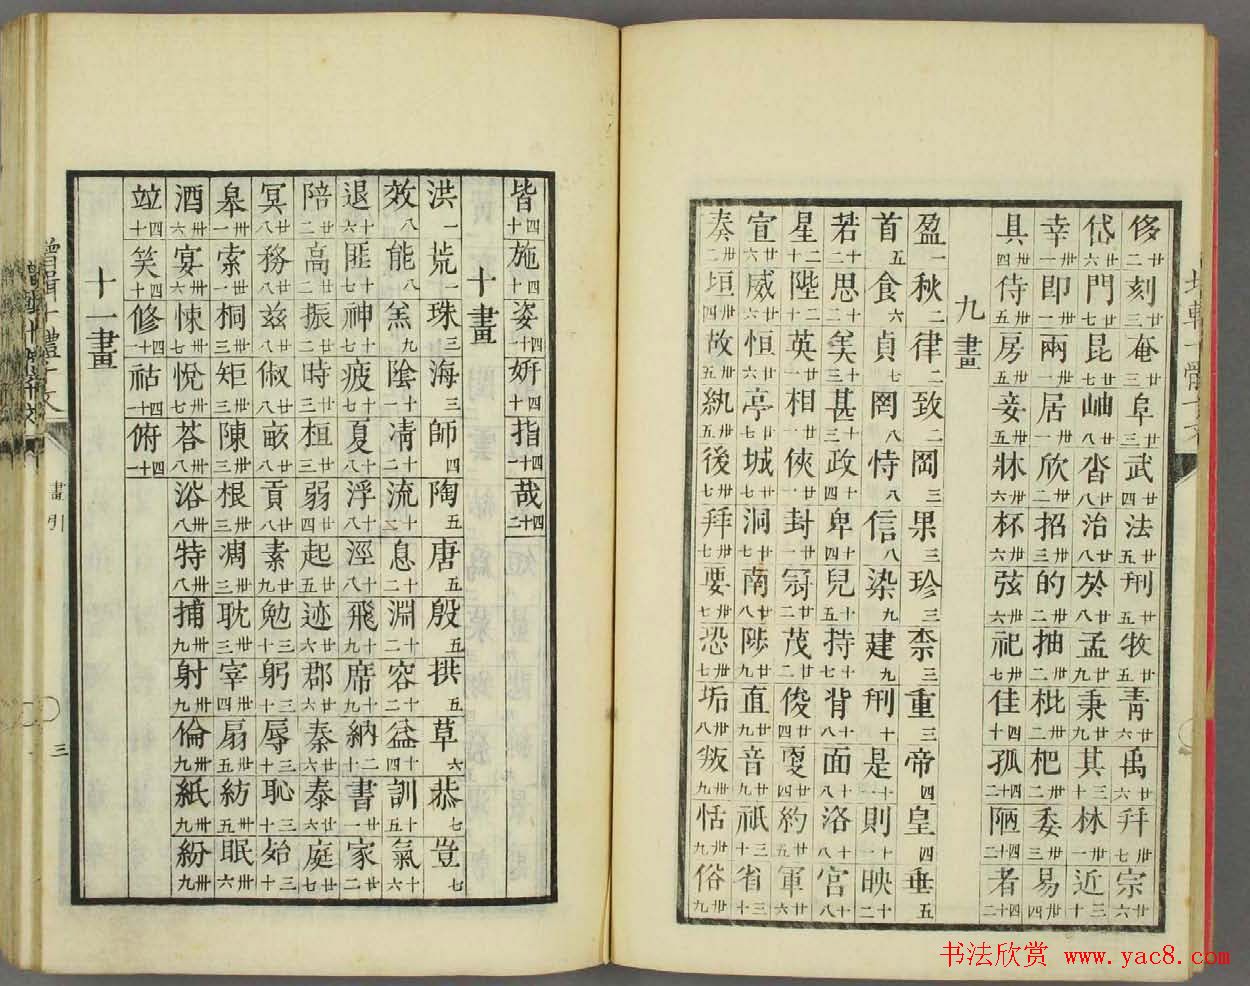 侈廿二 刻廿三 奄廿三 阜廿三 武廿四 法廿五 刑廿五 牧廿五 青廿六 禹廿六 幷廿七 宗廿六
岱廿六 門廿七 昆廿七 岫廿八 沓廿八 治廿八 於廿八 孟廿九 秉廿九 其三十 林三十 近三十
幸卅一 即卅一 兩卅一 居卅一 欣卅二 招卅三 的卅二 抽卅二 枇卅二 杷卅二 委卅三 易卅四
具卅四 侍卅五 房卅五 妾卅五 牀卅六 杯卅六 弦卅六 祀卅七 佳四十 孤四十二 陋四十二 者四十二
九畫
盈一 秋二 律二 致二 岡三 果三 珍三 柰三 重三 帝四 皇四 垂五
首五 食六 貞七 罔八 恃八 信八 染九 建九 刑十 是十一 則十一 映十二
若十二 思十二 美十三 甚十三 政十四 卑十四 兒十五 持十六 背十八 面十八 洛十八 宮十八
星二十 陛二十 英廿一 相廿一 俠廿一 封廿一 冠廿二 茂廿二 俊廿四 寔廿四 約廿五 軍廿六
宣廿六 威廿六 恒廿六 亭廿七 城廿七 洞廿七 南廿八 陟廿九 直廿九 音廿九 祇三十 省三十
奏卅二 垣卅四 故卅五 紈卅五 後卅七 拜卅七 要卅七 恐卅七 垢卅八 叛卅九 恬卅九 俗卅九
皆四十 施四十 姿四十 妍四十 指四十一 哉四十二
十畫
洪一 荒一 珠三 海三 師四 陶五 唐五 殷五 拱五 草六 恭七 豈七
效八 能八 羔九 陰十 凊十二 流十二 息十二 淵十二 容十二 益十四 訓十五 氣十六
退十六 匪十七 神十七 疲十七 夏十八 浮十八 涇十八 飛十九 席十九 納二十 書廿一 家廿二
陪廿二 高廿二 振廿二 時廿三 桓廿三 弱廿四 起廿五 迹廿六 郡廿六 秦廿六 泰廿六 庭廿七
冥廿八 務廿八 兹廿八 俶廿八 畝廿八 貢廿八 素廿九 勉三十 躬三十 辱三十 恥三十 殆三十
皋卅一 索卅一 桐卅三 矩卅三 陳卅三 根卅三 凋卅三 耽卅三 宰卅四 扇卅五 紡卅五 眠卅六
酒卅六 宴卅六 悚卅七 悅卅七 荅卅八 浴卅八 特卅八 捕卅九 射卅九 倫卅九 紙卅九 紛卅九
竝四十 笑四十 修四十一 祜四十一 俯四十一
十一畫
增輯十體千文
畫引
三
书法欣赏 www.yac8.com